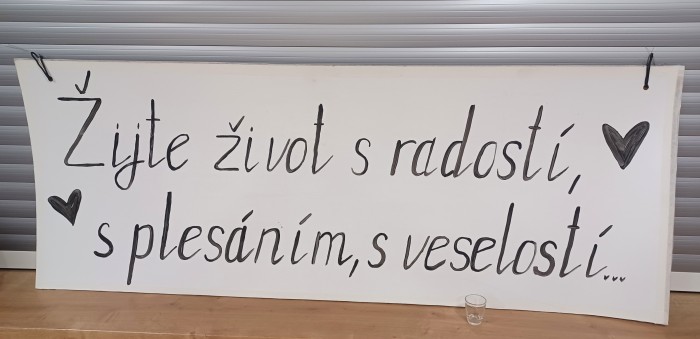 Žijte život s radostí,
s plesáním, s veselostí...